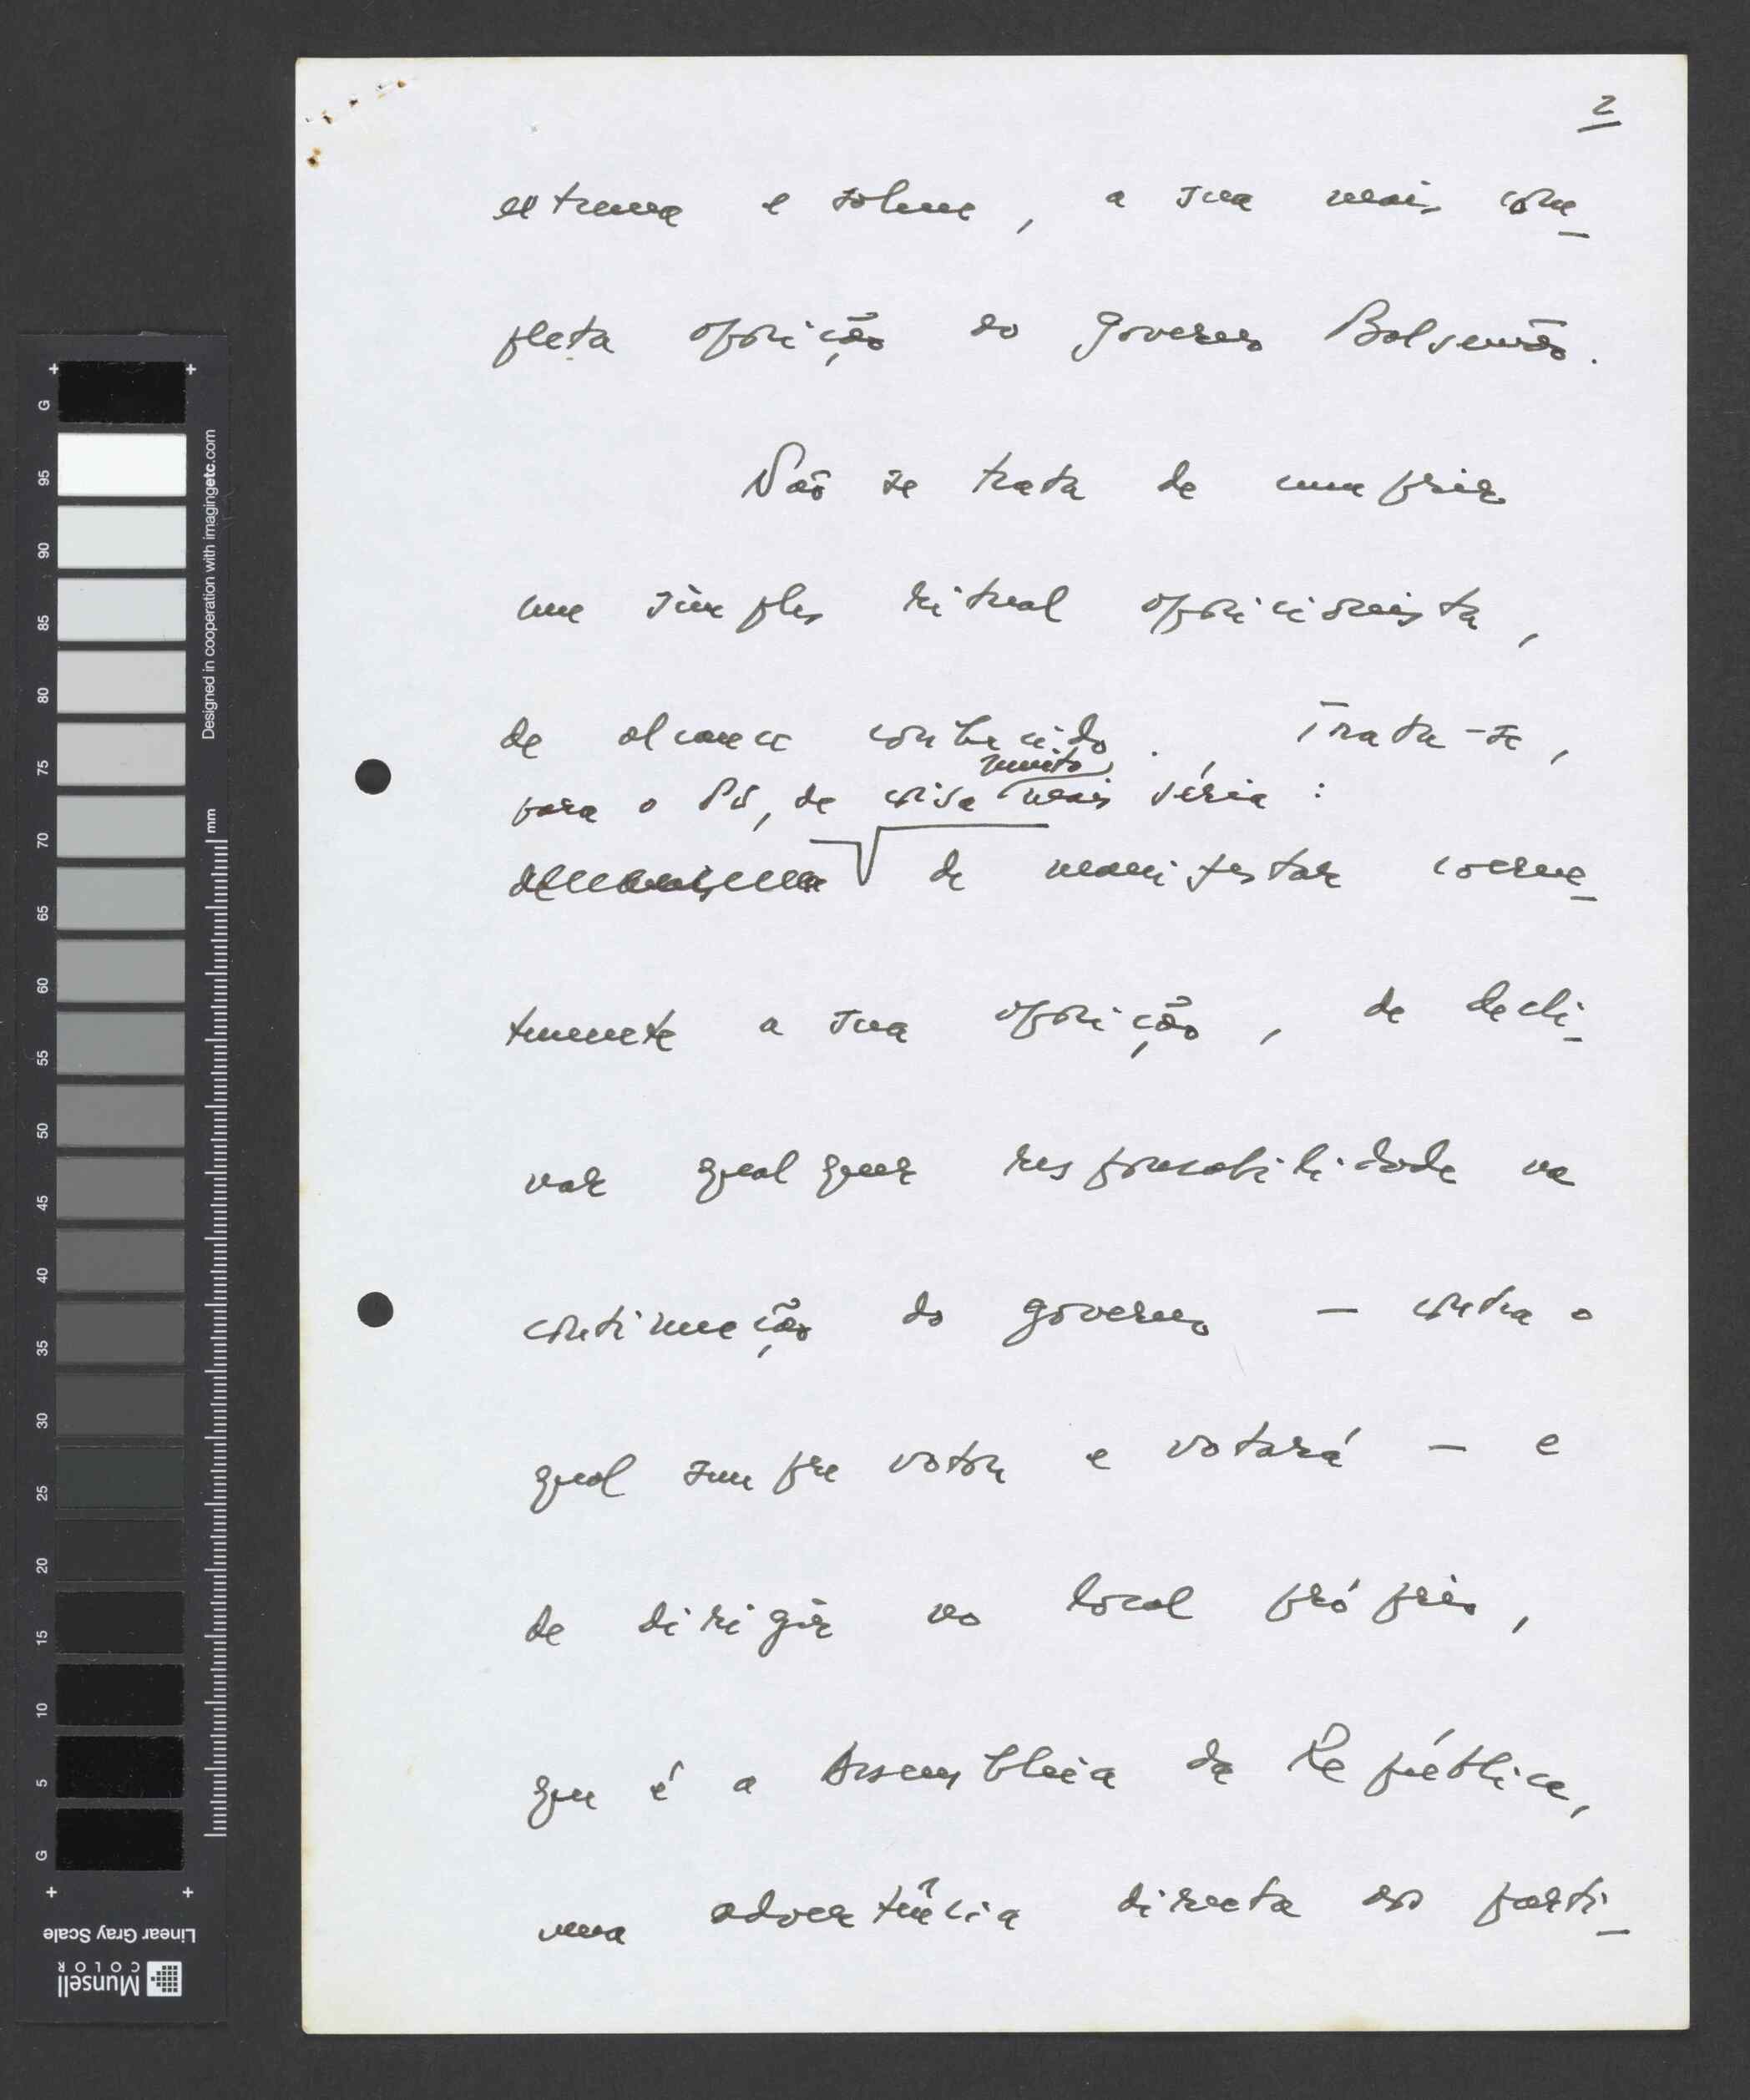 2
extrema e solene, a sua mais com-
pleta oposição ao governo Balsemão.
Não se trata de cumprir
um simples ritual oposicionista,
de alcance conhecido. Trata-se,
muito
para o PS, de coisa mais séria:
de manifestar coeren-
temente a sua oposição, de decli-
nar qualquer responsabilidade na
continuação do governo — contra o
qual sempre votou e votará — e
de dirigir no local próprio,
que é a Assembleia da República,
uma advertência directa aos parti-
Designed in cooperation with imagingetc.com
mm
G
95
90
85
80
75
70
65
60
55
50
45
40
35
30
25
20
15
10
5
G
Linear Gray Scale
Munsell
COLOR